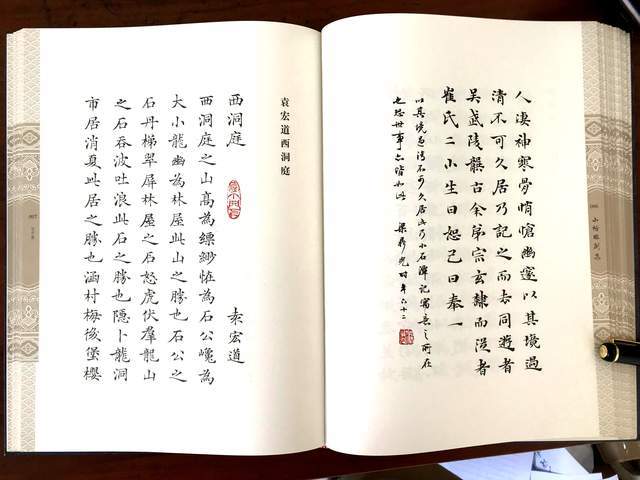 人凄神寒骨悄愴幽邃以其境過
清不可久居乃記之而去同遊者
吳武陵龔古余弟宗玄隸而從者
崔氏二小生曰恕己曰奉一
以其境過清不可久居此乃小石潭記寓意之所在
也世事亦皆如此 梁鼎光時年六十二
袁宏道西洞庭
西洞庭 袁宏道
西洞庭之山高為縹緲怪為石公巉為
大小龍幽為林屋此山之勝也石公之
石丹梯翠屏林屋之石怒虎伏羣龍山
之石吞波吐浪此石之勝也隱卜龍洞
市居消夏此居之勝也涵村梅後堡櫻